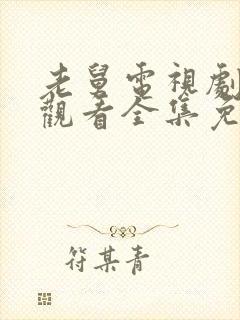 老舅電視劇
觀看全集免
符某青